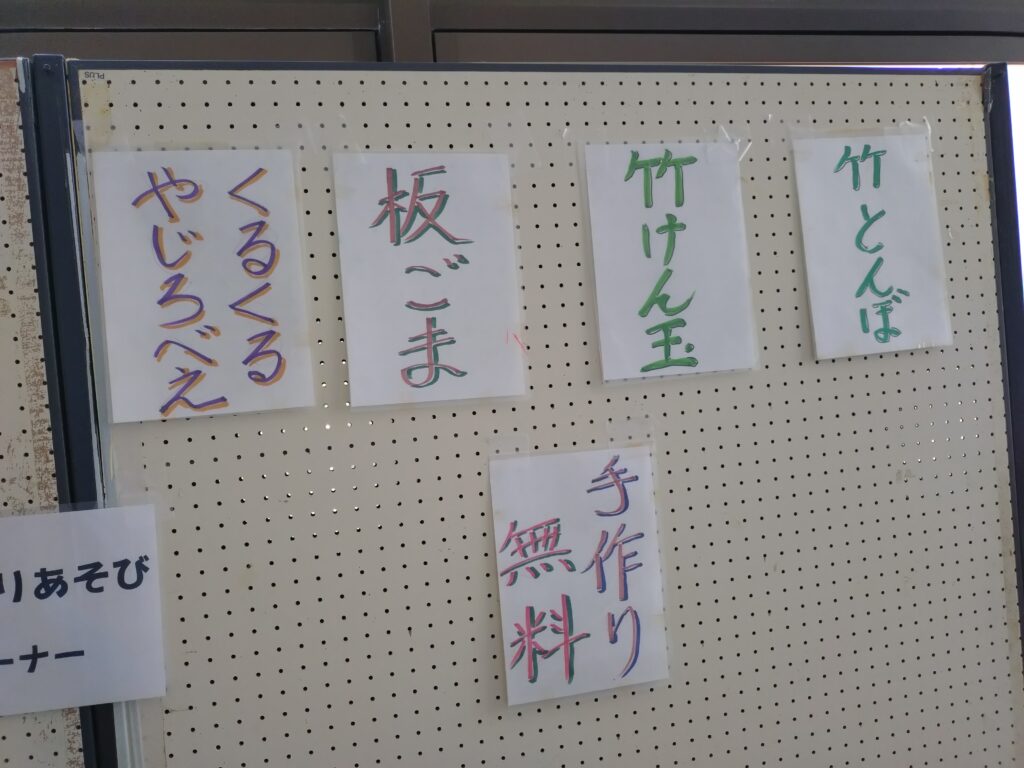 竹とんぼ
竹けん玉
板ごま
くるくる
やじろべえ
手作り
無料
りあそび
ーナー
PLUS